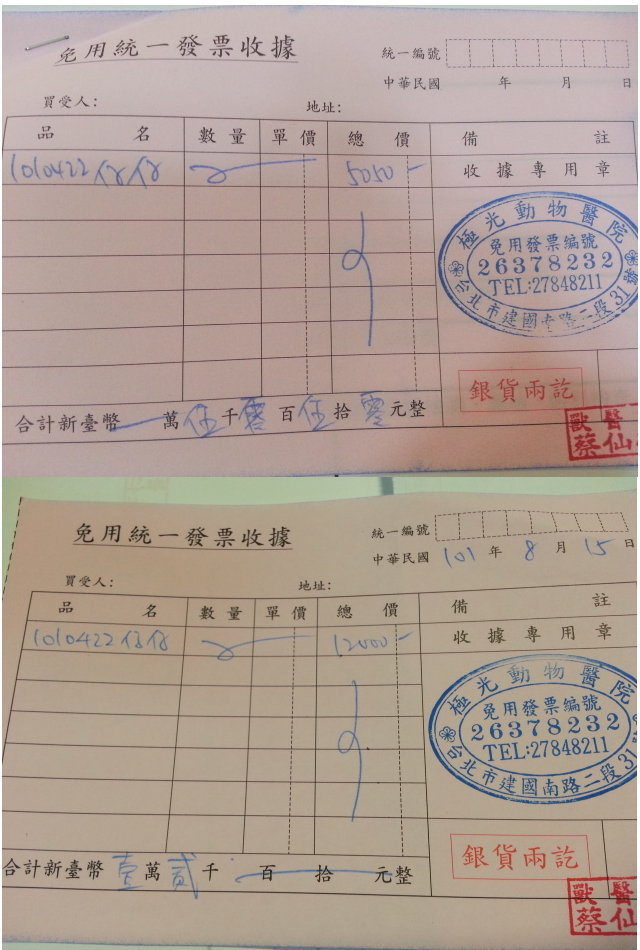 免用統一發票收據
統一編號
中華民國 年 月 日
買受人: 地址:
品 名 數 量 單 價 總 價 備 註
1010422 仔仔 5050 收據專用章
極光動物醫院
免用發票編號
26378232
TEL:27848211
台北市建國南路二段31號
銀貨兩訖
合計新臺幣 萬伍千零百伍拾零元整
獸醫
蔡仙
免用統一發票收據
統一編號
中華民國 101 年 8 月 15 日
買受人: 地址:
品 名 數 量 單 價 總 價 備 註
1010422 仔仔 12000 收據專用章
極光動物醫院
免用發票編號
26378232
TEL:27848211
台北市建國南路二段31
銀貨兩訖
合計新臺幣壹萬貳千 百 拾 元整
獸醫
蔡仙